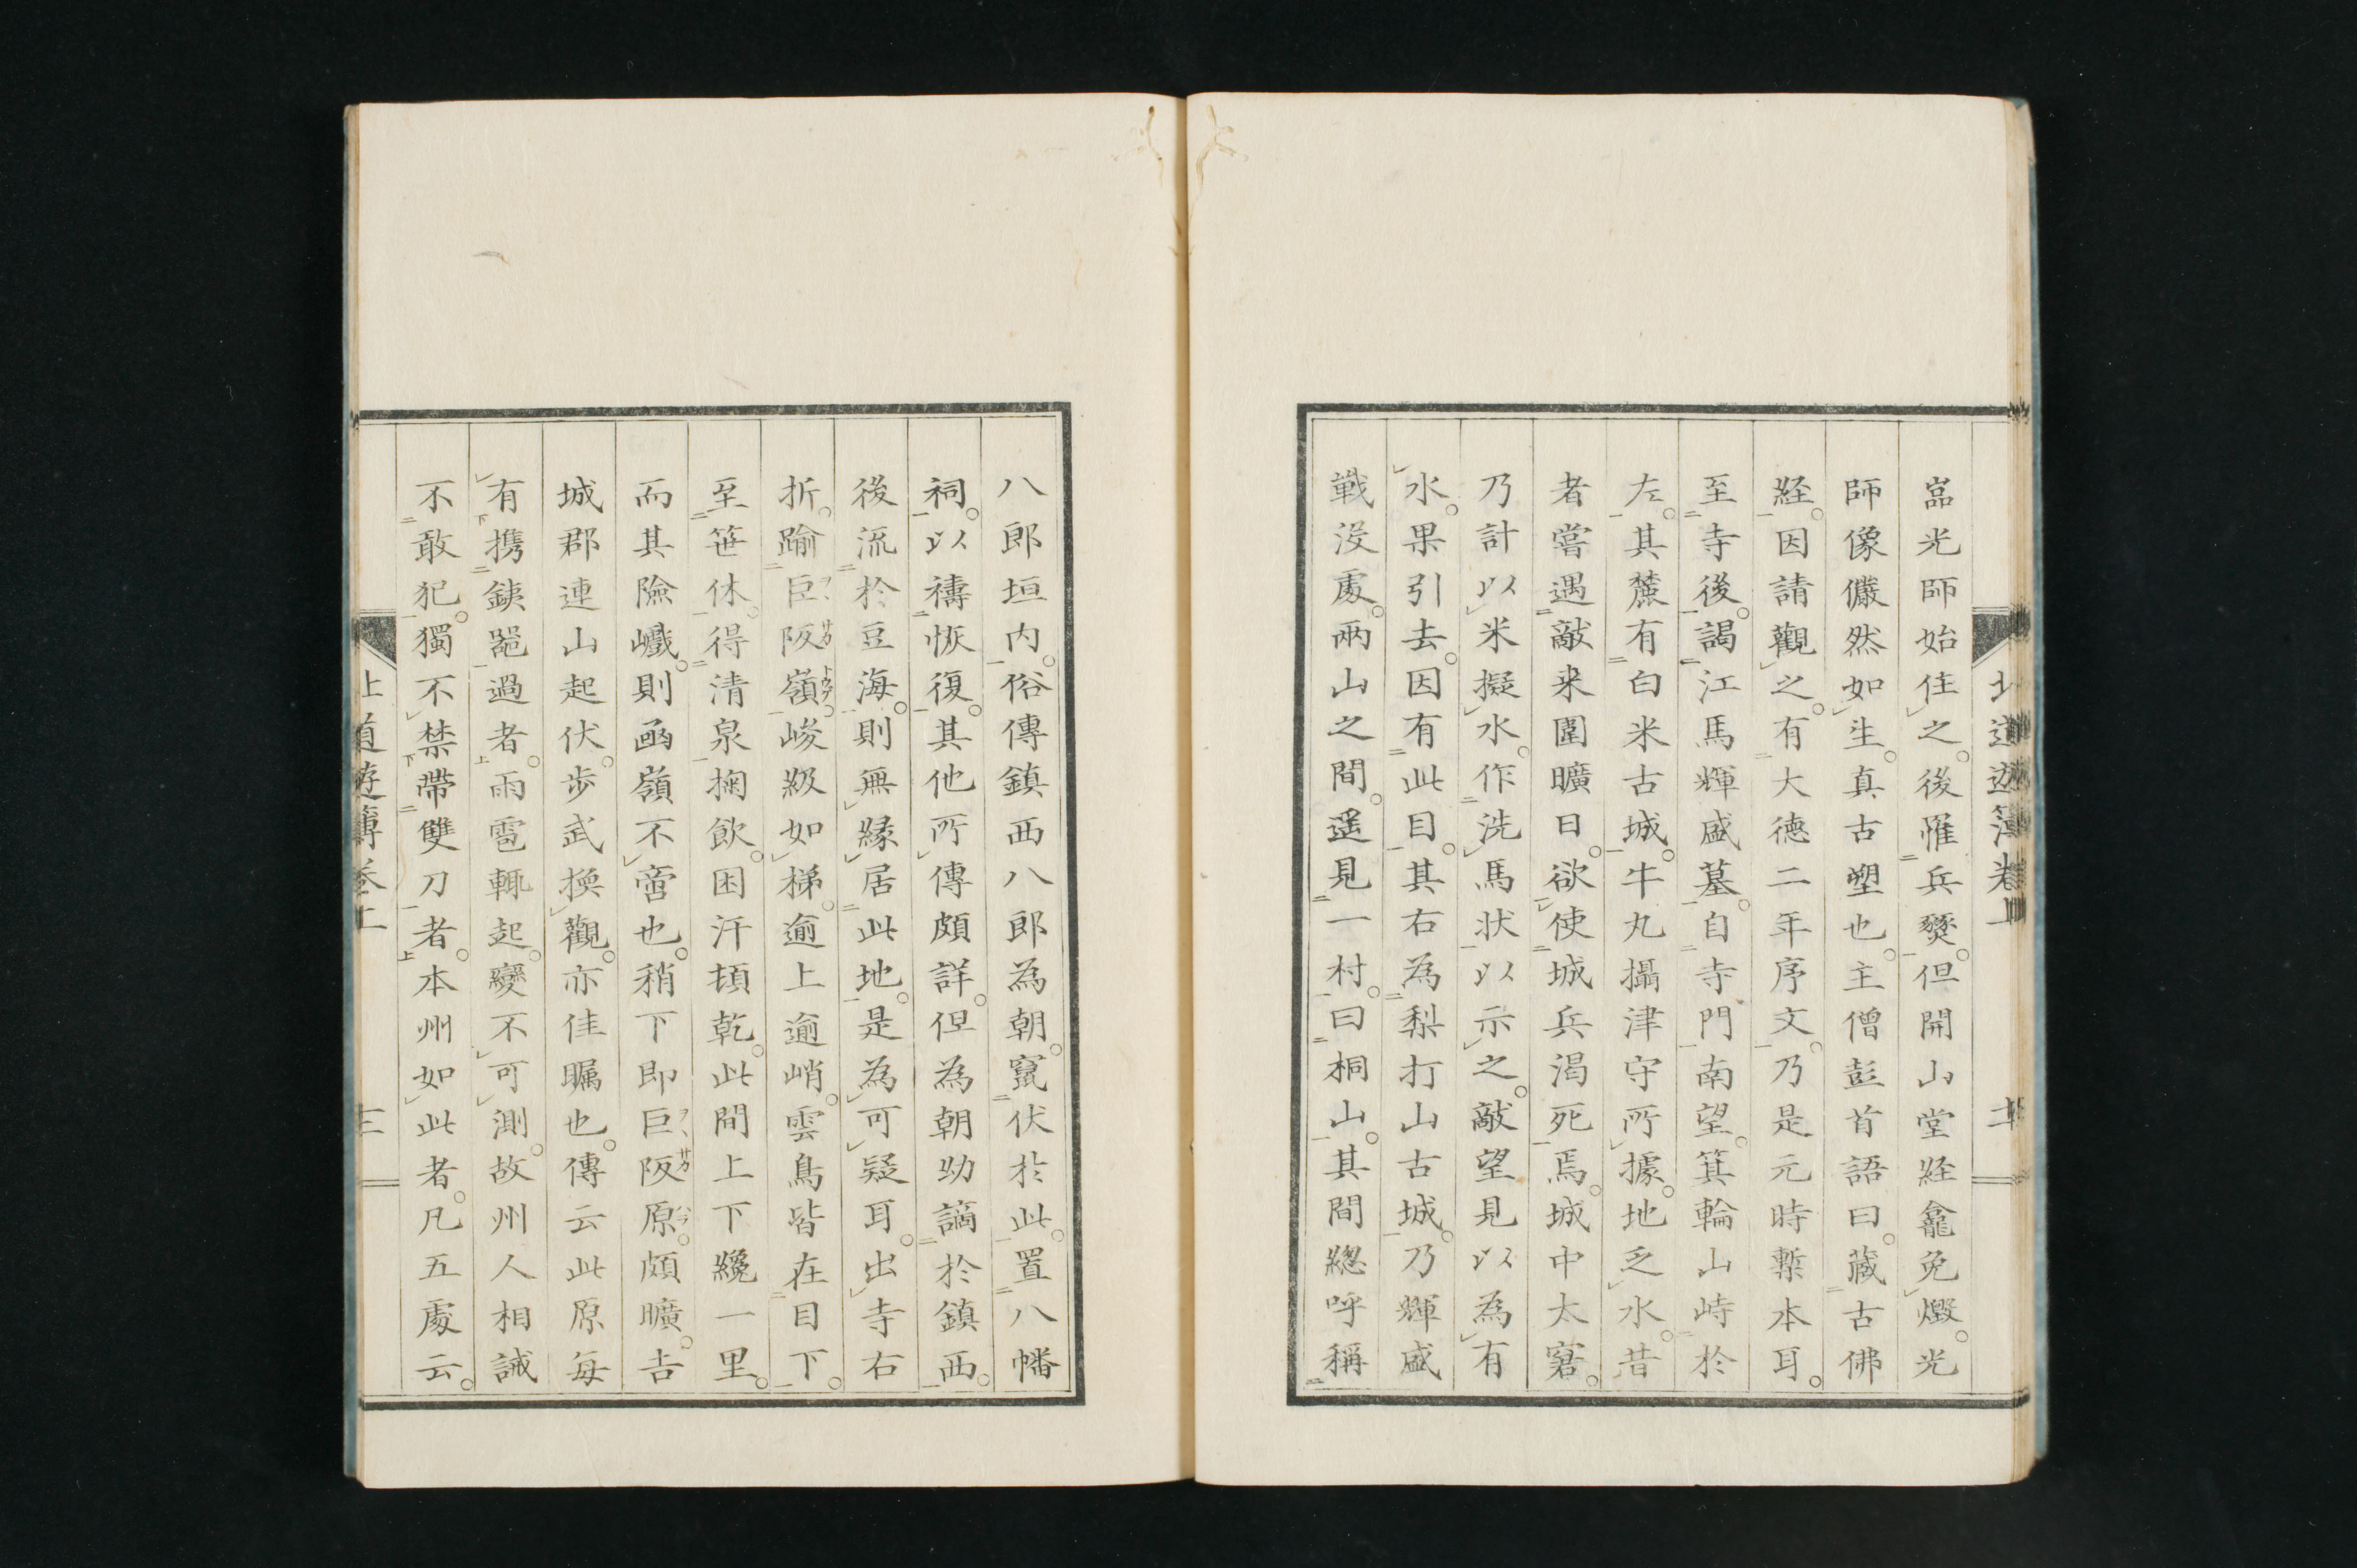 北道遊簿卷上
嵓光師始住之後罹兵燹但開山堂経龕免燬光
師像儼然如生真古塑也主僧彭首語曰蔵古佛
経因請觀之有大徳二年序文乃是元時槧本耳
至寺後謁江馬輝盛墓自寺門南望箕輪山峙於
左其麓有白米古城牛丸攝津守所據地乏水昔
者嘗遇敵来圍曠日欲使城兵渇死焉城中太窘
乃計以米擬水作洗馬状以示之敵望見以為有
水果引去因有此目其右為梨打山古城乃輝盛
戦没處兩山之間遥見一村曰桐山其間總呼稱
八郎垣内俗傳鎮西八郎為朝竄伏於此置八幡
祠以禱恢復其他所傳頗詳但為朝助謫於鎮西
後流於豆海則無縁居此地是為可疑耳出寺右
折踰巨阪嶺峻級如梯逾上逾峭雲鳥皆在目下
至笹休得清泉掬飲困汗頓乾此間上下纔一里
而其險巇則凾嶺不啻也稍下即巨阪原頗曠吉
城郡連山起伏歩武換觀亦佳矚也傳云此原毎
有携銕噐過者雨雹輒起變不可測故州人相誡
不敢犯獨不禁帶雙刀者本州如此者凡五處云
北道遊簿卷上